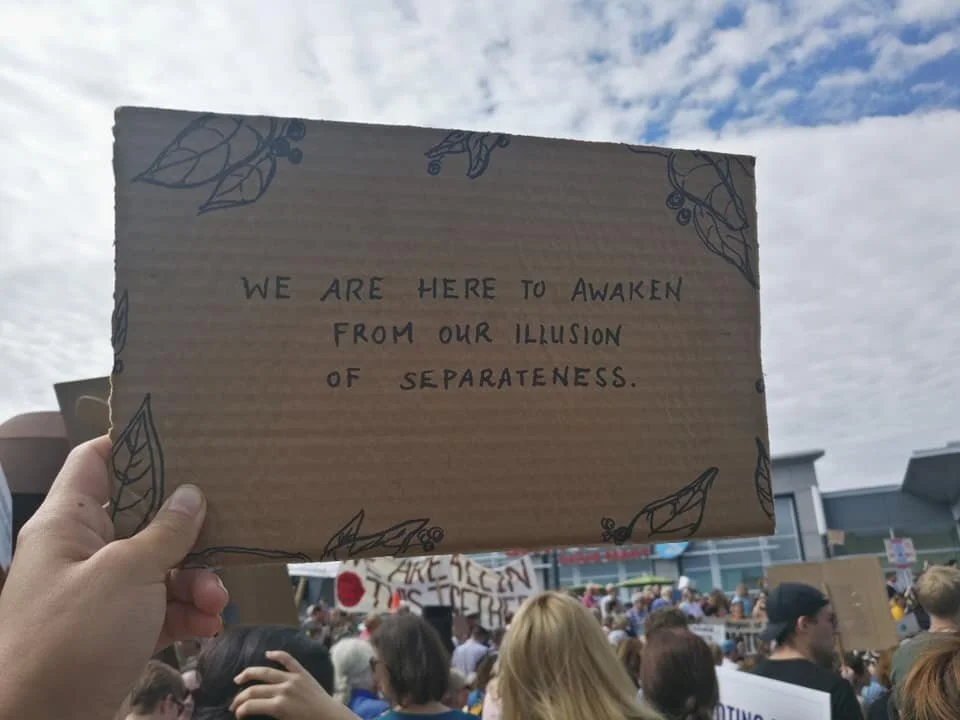 WE ARE HERE TO AWAKEN
FROM OUR ILLUSION
OF SEPARATENESS.
ARE ALL IN
THIS TOGETHE